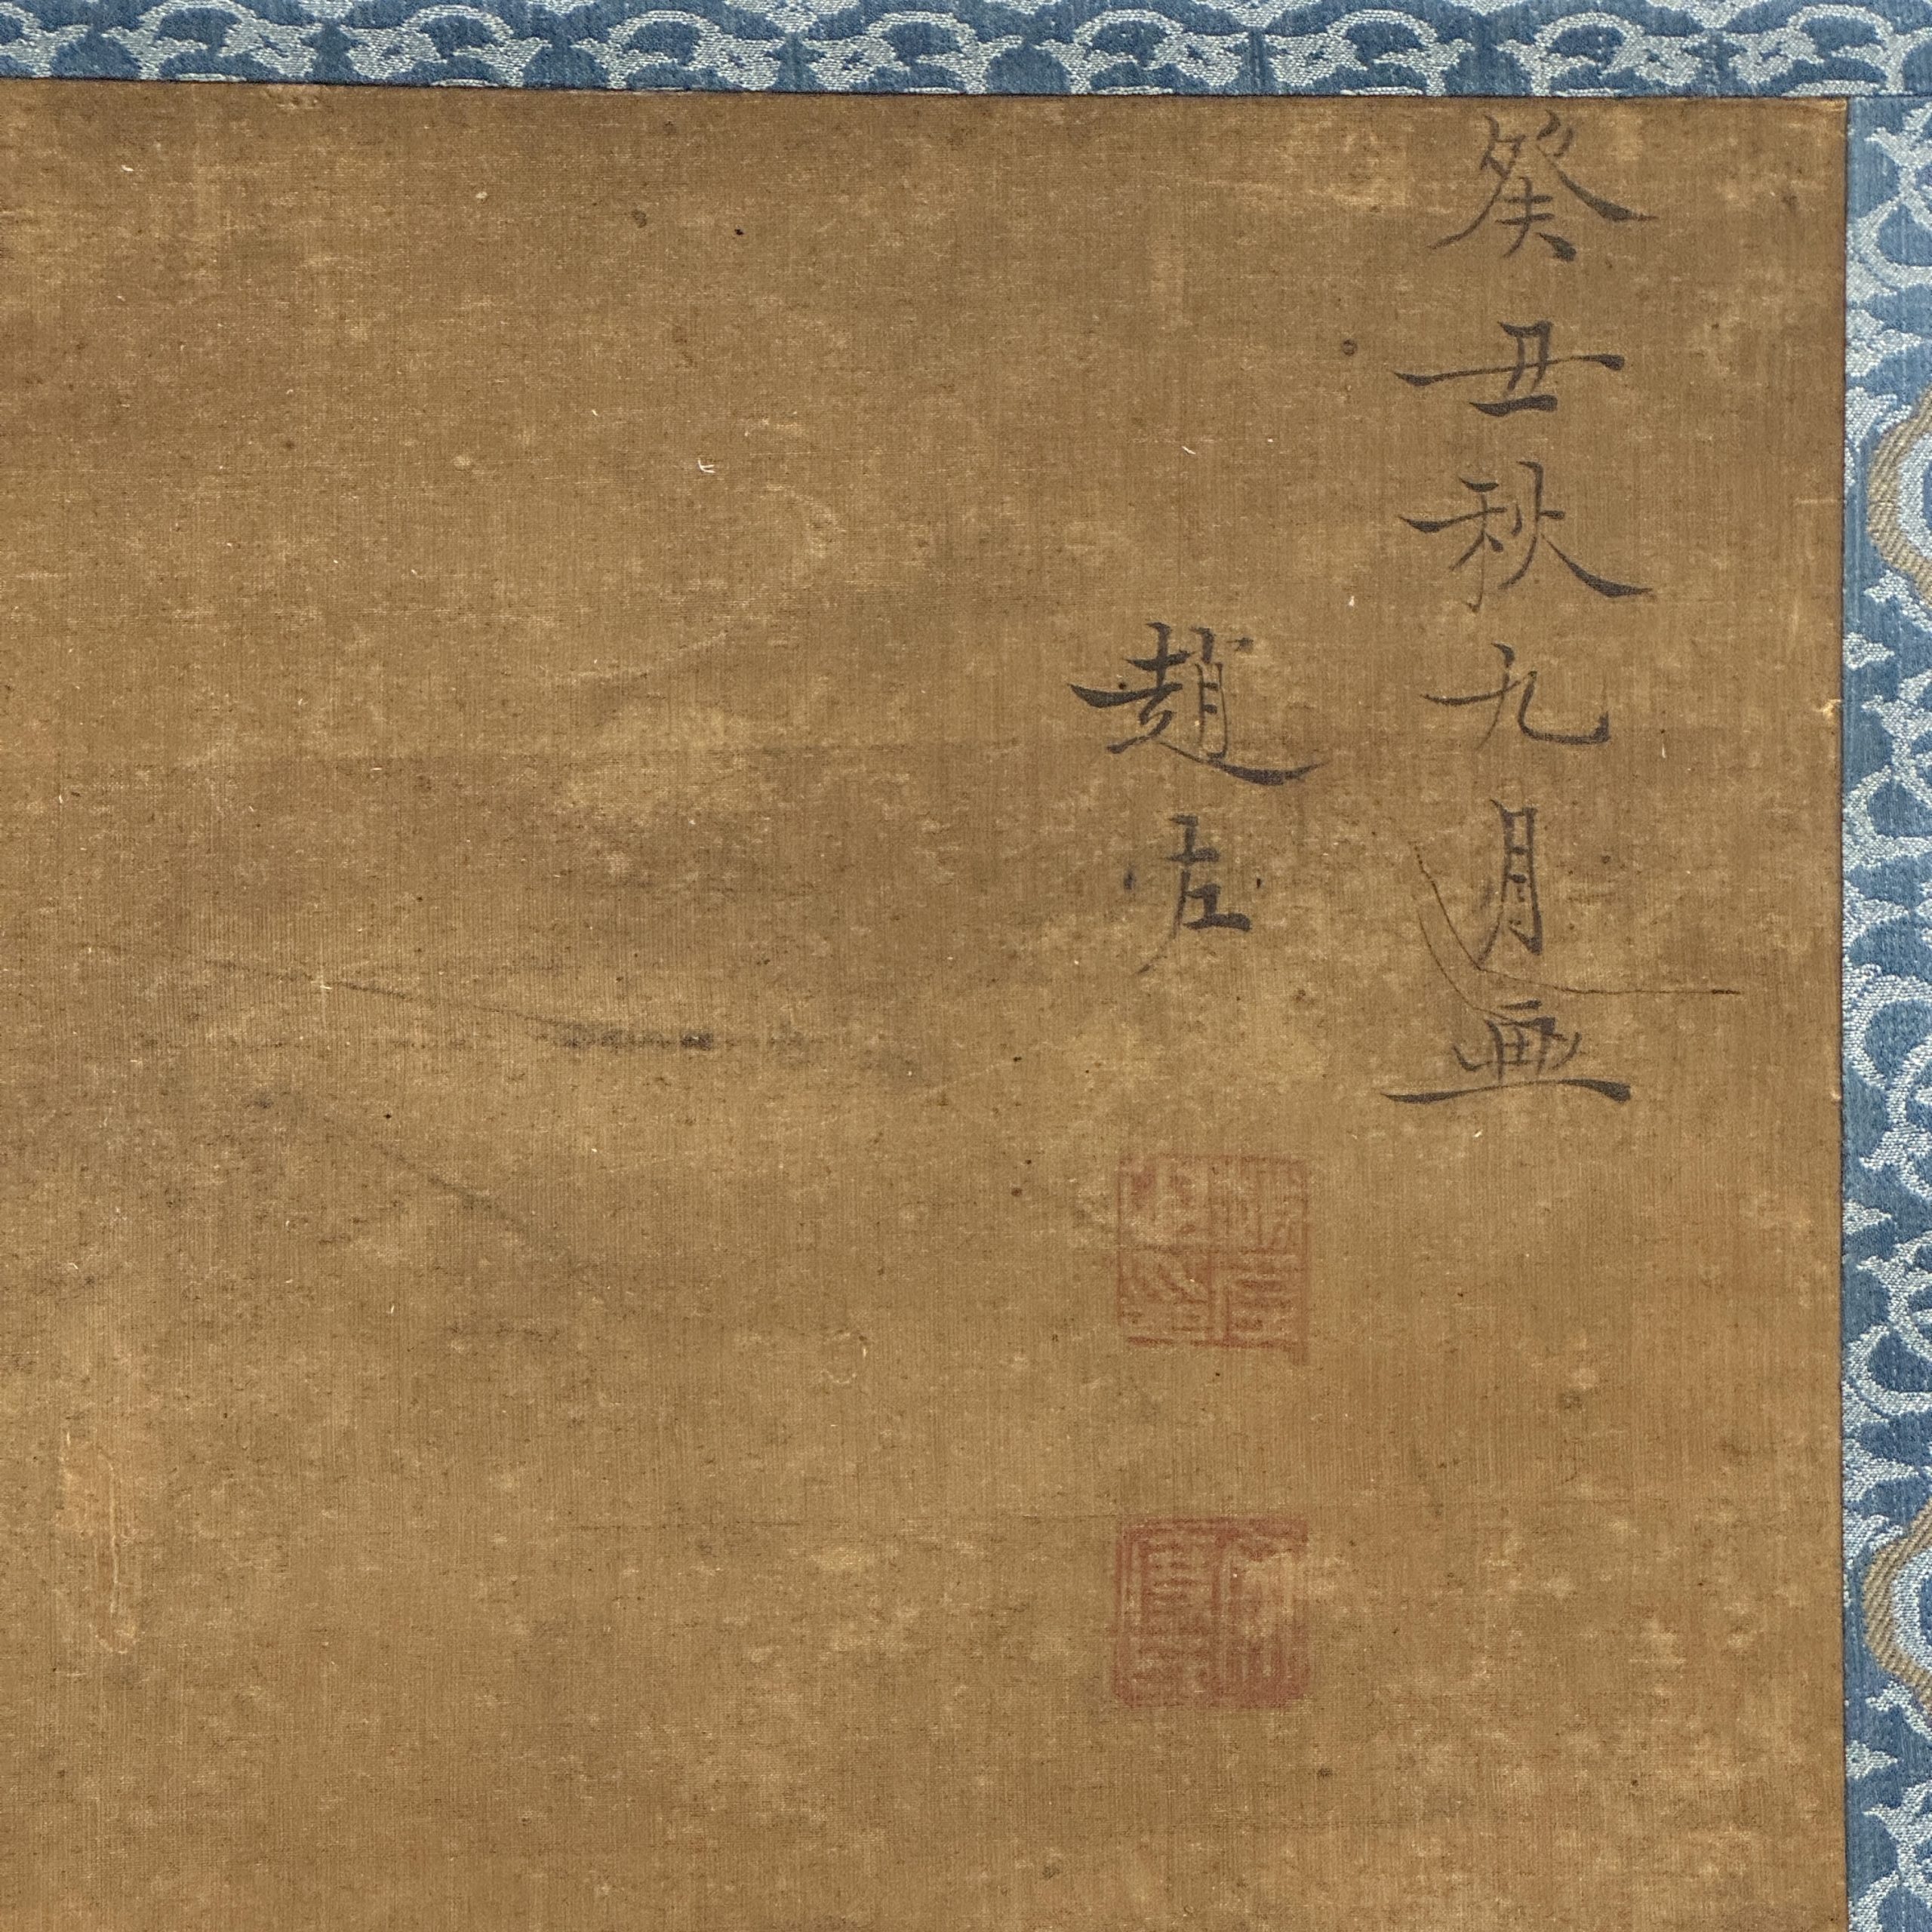 癸丑秋九月畫
趙左